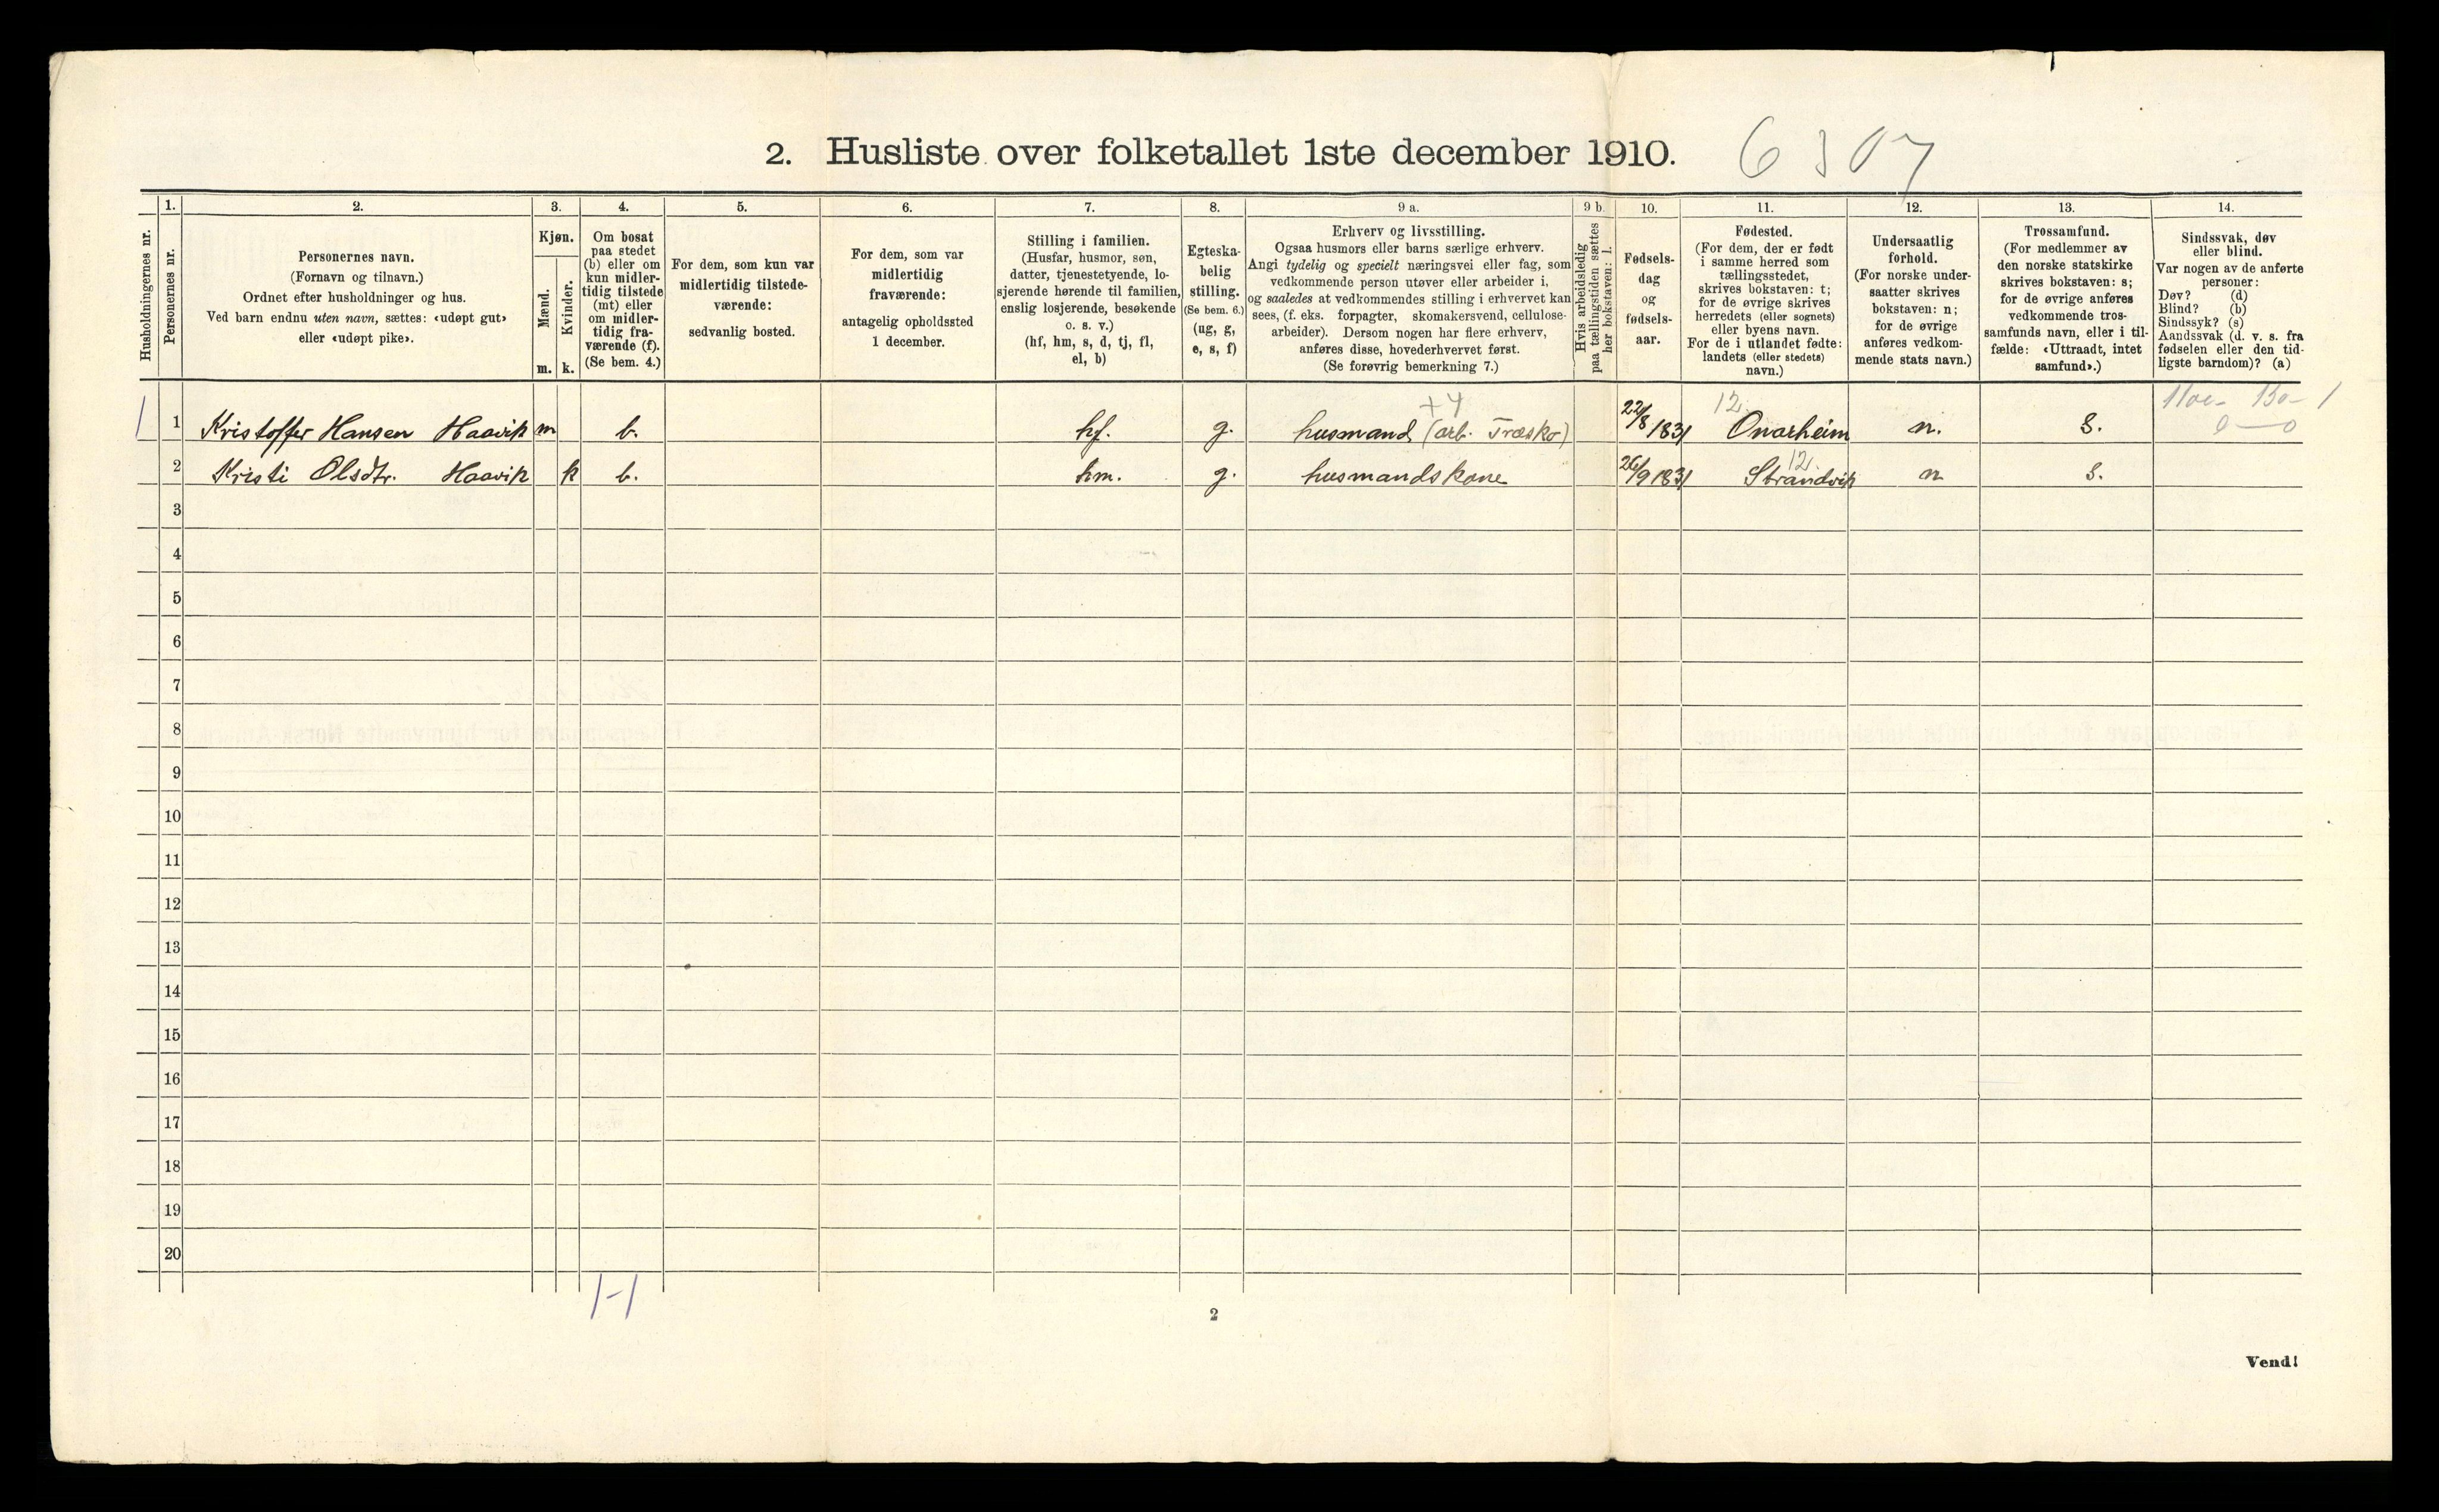 2. Husliste over folketallet 1ste december 1910.
6307
Husholdningernes nr.
1.
Personernes nr.
2.
Personernes navn.
(Fornavn og tilnavn.)
Ordnet efter husholdninger og hus.
Ved barn endnu uten navn, sættes: «udøpt gut»
eller «udøpt pike».
3.
Kjøn.
Mænd.
Kvinder.
m. k.
4.
Om bosat
paa stedet
(b) eller om
kun midler-
tidig tilstede
(mt) eller
om midler-
tidig fra-
værende (f).
(Se bem. 4.)
5.
For dem, som kun var
midlertidig tilstede-
værende:
sedvanlig bosted.
6.
For dem, som var
midlertidig
fraværende:
antagelig opholdssted
1 december.
7.
Stilling i familien.
(Husfar, husmor, søn,
datter, tjenestetyende, lo-
sjerende hørende til familien,
enslig losjerende, besøkende
o. s. v.)
(hf, hm, s, d, tj, fl,
el, b)
8.
Egteska-
belig
stilling.
(Se bem. 6.)
(ug, g,
e, s, f)
9 a.
Erhverv og livsstilling.
Ogsaa husmors eller barns særlige erhverv.
Angi tydelig og specielt næringsvei eller fag, som
vedkommende person utøver eller arbeider i,
og saaledes at vedkommendes stilling i erhvervet kan
sees, (f. eks. forpagter, skomakersvend, cellulose-
arbeider). Dersom nogen har flere erhverv,
anføres disse, hovederhvervet først.
(Se forøvrig bemerkning 7.)
9 b.
Hvis arbeidsledig
paa tællingstiden sættes
her bokstaven: l.
10.
Fødsels-
dag
og
fødsels-
aar.
11.
Fødested.
(For dem, der er født
i samme herred som
tællingsstedet,
skrives bokstaven: t;
for de øvrige skrives
herredets (eller sognets)
eller byens navn.
For de i utlandet fødte:
landets (eller stedets)
navn.)
12.
Undersaatlig
forhold.
(For norske under-
saatter skrives
bokstaven: n;
for de øvrige
anføres vedkom-
mende stats navn.)
13.
Trossamfund.
(For medlemmer av
den norske statskirke
skrives bokstaven: s;
for de øvrige anføres
vedkommende tros-
samfunds navn, eller i til-
fælde: «Uttraadt, intet
samfund».)
14.
Sindssvak, døv
eller blind.
Var nogen av de anførte
personer:
Døv? (d)
Blind? (b)
Sindssyk? (s)
Aandssvak (d. v. s. fra
fødselen eller den tid-
ligste barndom)? (a)
+4 12
1 1 Kristoffer Hansen Haavik m b. hf. g. husmand (arb. Træsko) 22/8 1831 Onarheim n. s.
0—0
12
2 Kristi Olsdtr. Haavik k b. hm. g. husmandskone 26/9 1831 Strandvik n s.
3
4
5
6
7
8
9
10
11
12
13
14
15
16
17
18
19
20
1-1
2
Vend!